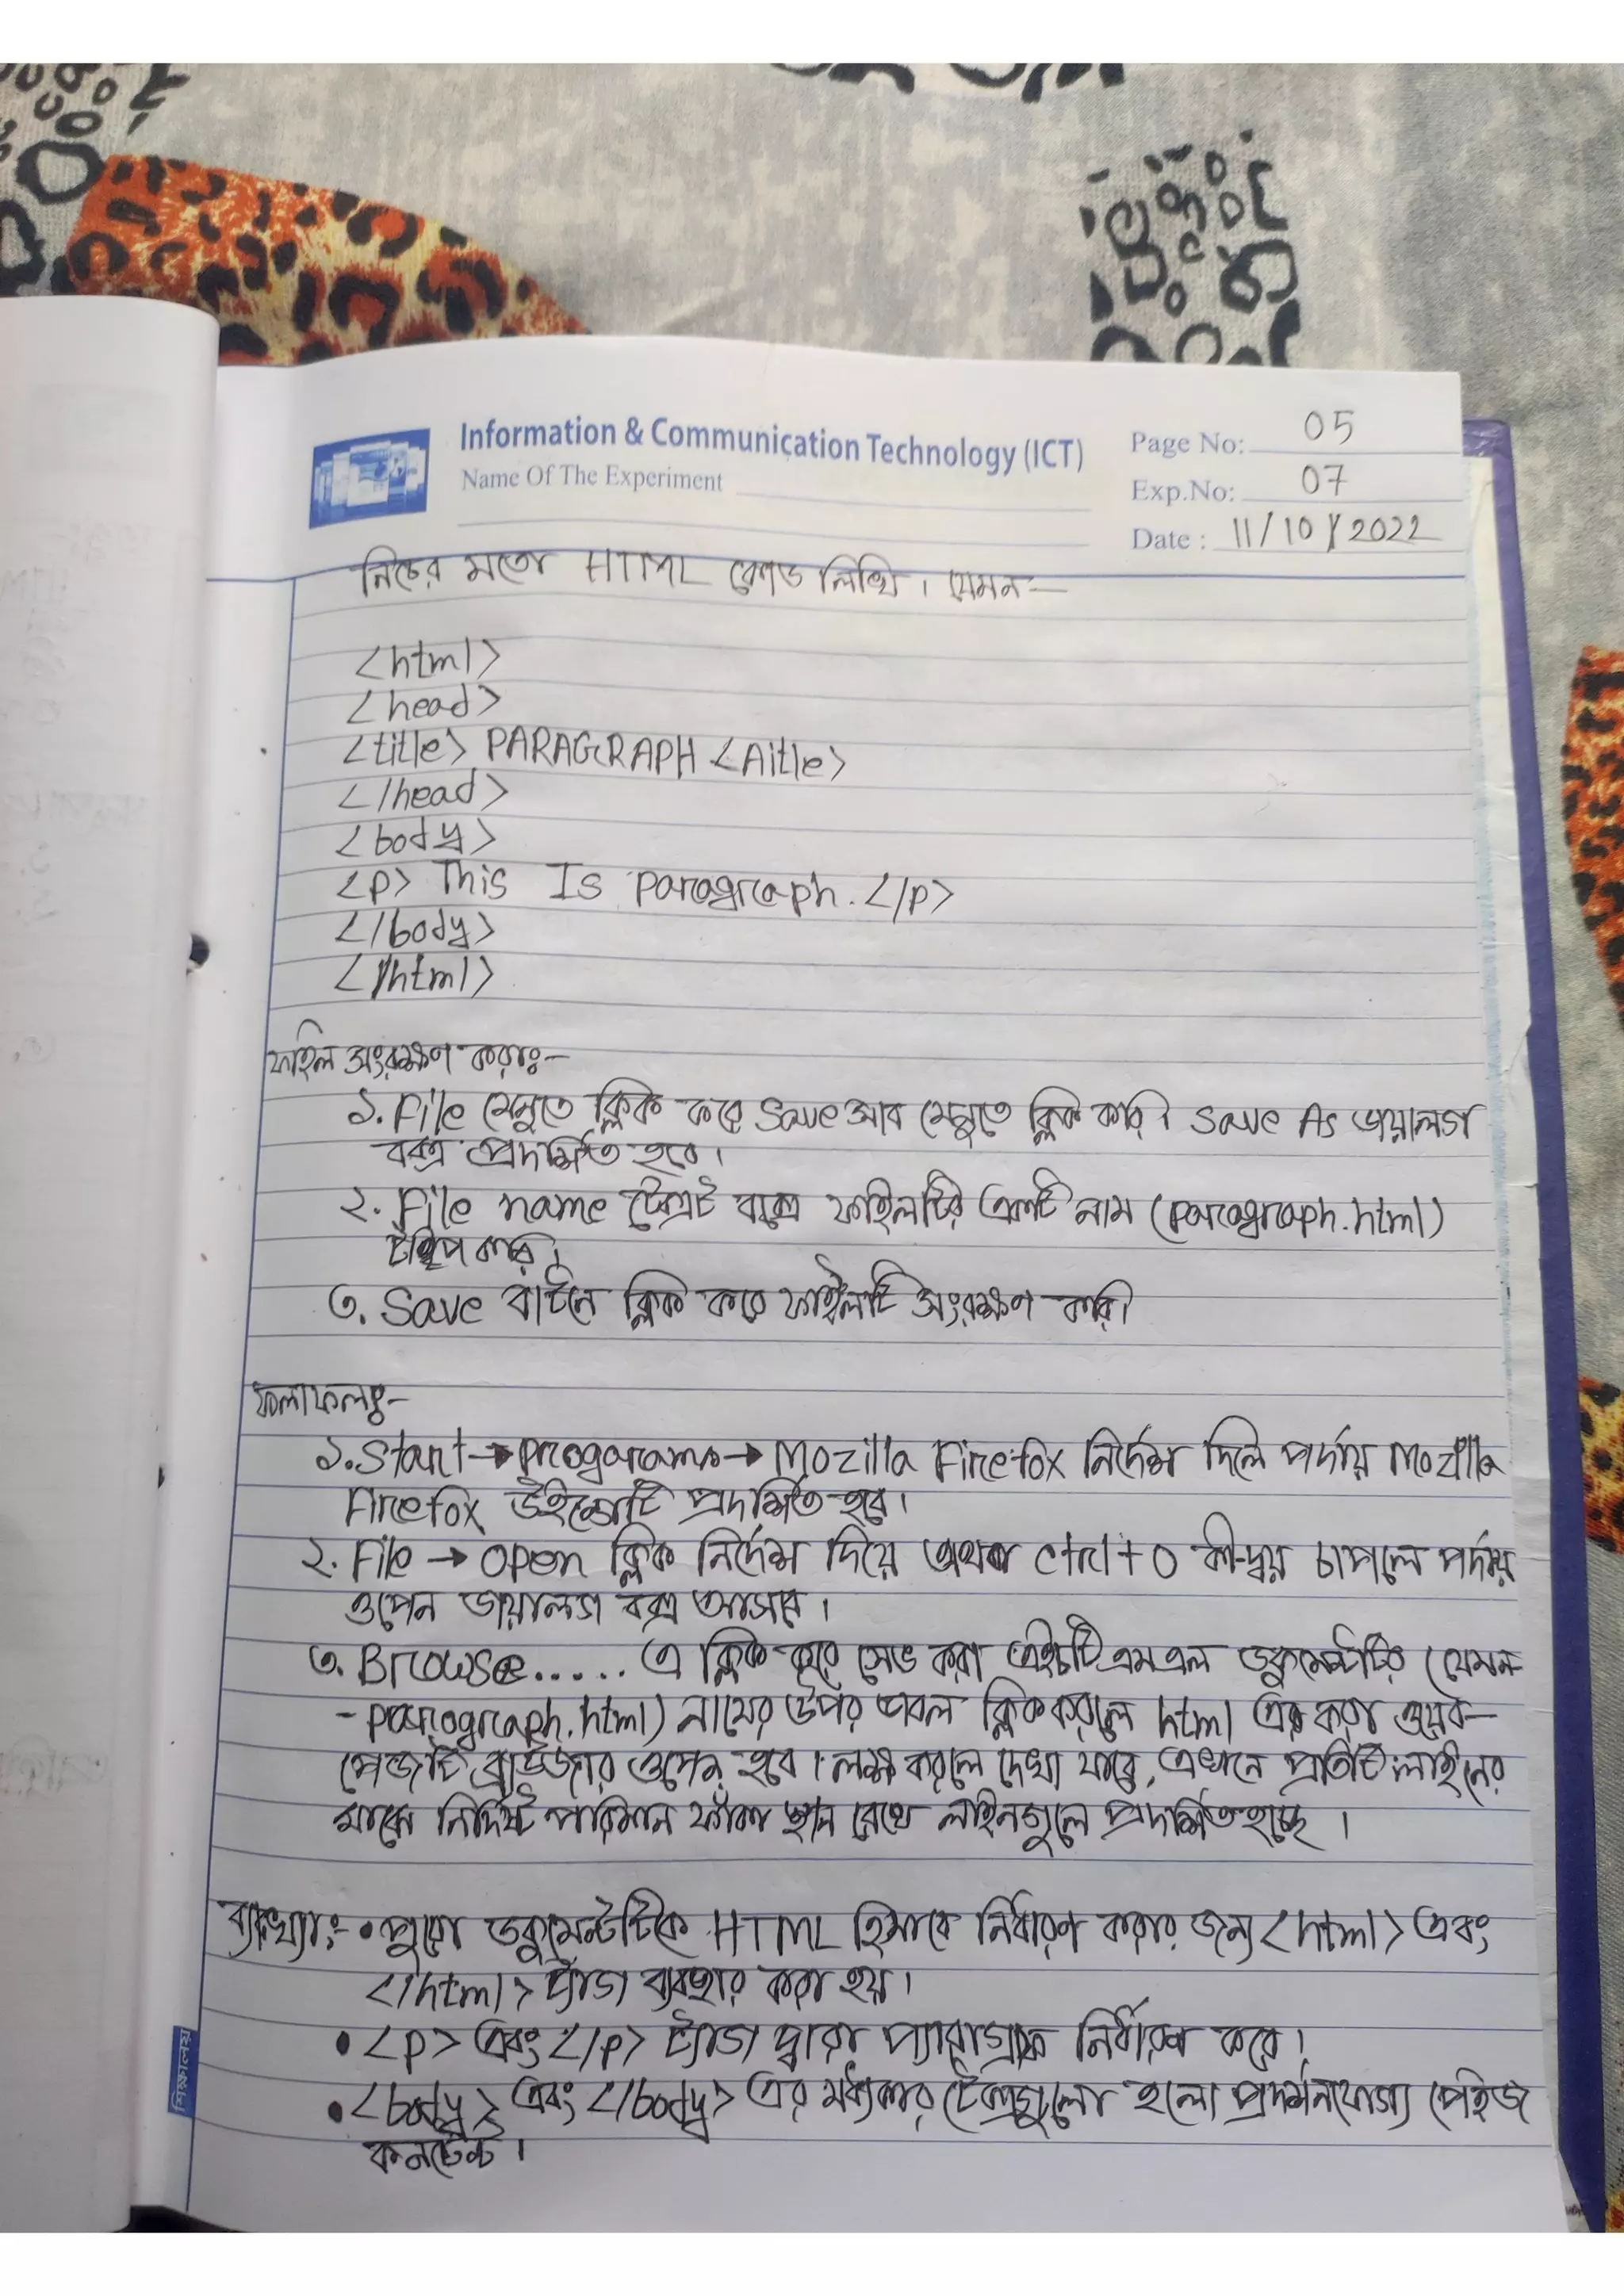 Information & Communication Technology (ICT)
Name Of The Experiment
Page No: 05
Exp.No: 07
Date : 11/10/2022
নিচের মতো HTML কোড লিখি। যেমন—
<html>
<head>
<title> PARAGRAPH </title>
</head>
<body>
<p> This Is paragraph. </p>
</body>
</html>
ফাইল সংরক্ষণ করাঃ-
১. File মেনুতে ক্লিক করে Save সাব মেনুতে ক্লিক করি। Save As ডায়ালগ
বক্স প্রদর্শিত হবে।
২. File name টেক্সট বক্সে ফাইলটির একটি নাম (paragraph.html)
টাইপ করি।
৩. Save বাটনে ক্লিক করে ফাইলটি সংরক্ষণ করি।
ফলাফলঃ-
১. Start → programs → Mozilla Firefox নির্দেশ দিলে পর্দায় Mozilla
Firefox উইন্ডোটি প্রদর্শিত হবে।
২. File → open ক্লিক নির্দেশ দিয়ে অথবা ctrl+o কী-দ্বয় চাপলে পর্দায়
ওপেন ডায়ালগ বক্স আসবে।
৩. Browse..... এ ক্লিক করে সেভ করা এইচটিএমএল ডকুমেন্টটির (যেমন-
- paragraph.html) নামের উপর ডাবল ক্লিক করলে html এর করা ওয়েব—
পেজটি ব্রাউজার ওপেন হবে। লক্ষ করলে দেখা যাবে, এখানে প্রতিটি লাইনের
মাঝে নির্দিষ্ট পরিমান ফাঁকা স্থান রেখে লাইনগুলে প্রদর্শিত হচ্ছে।
ব্যাখ্যাঃ- • পুরো ডকুমেন্টটিকে HTML হিসাবে নির্ধারণ করার জন্য <html> এবং
</html> ট্যাগ ব্যবহার করা হয়।
• <p> এবং </p> ট্যাগ দ্বারা প্যারাগ্রাফ নির্ধারণ করে।
• <body> এবং </body> এর মধ্যকার টেক্সগুলো হলো প্রদর্শনযোগ্য পেইজ
কনটেন্ট।
শিক্ষালয়